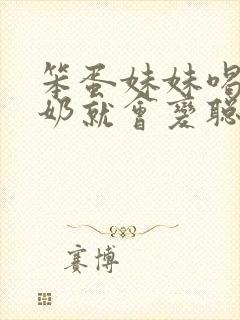 笨蛋妹妹喝
奶就會變聰
賽博